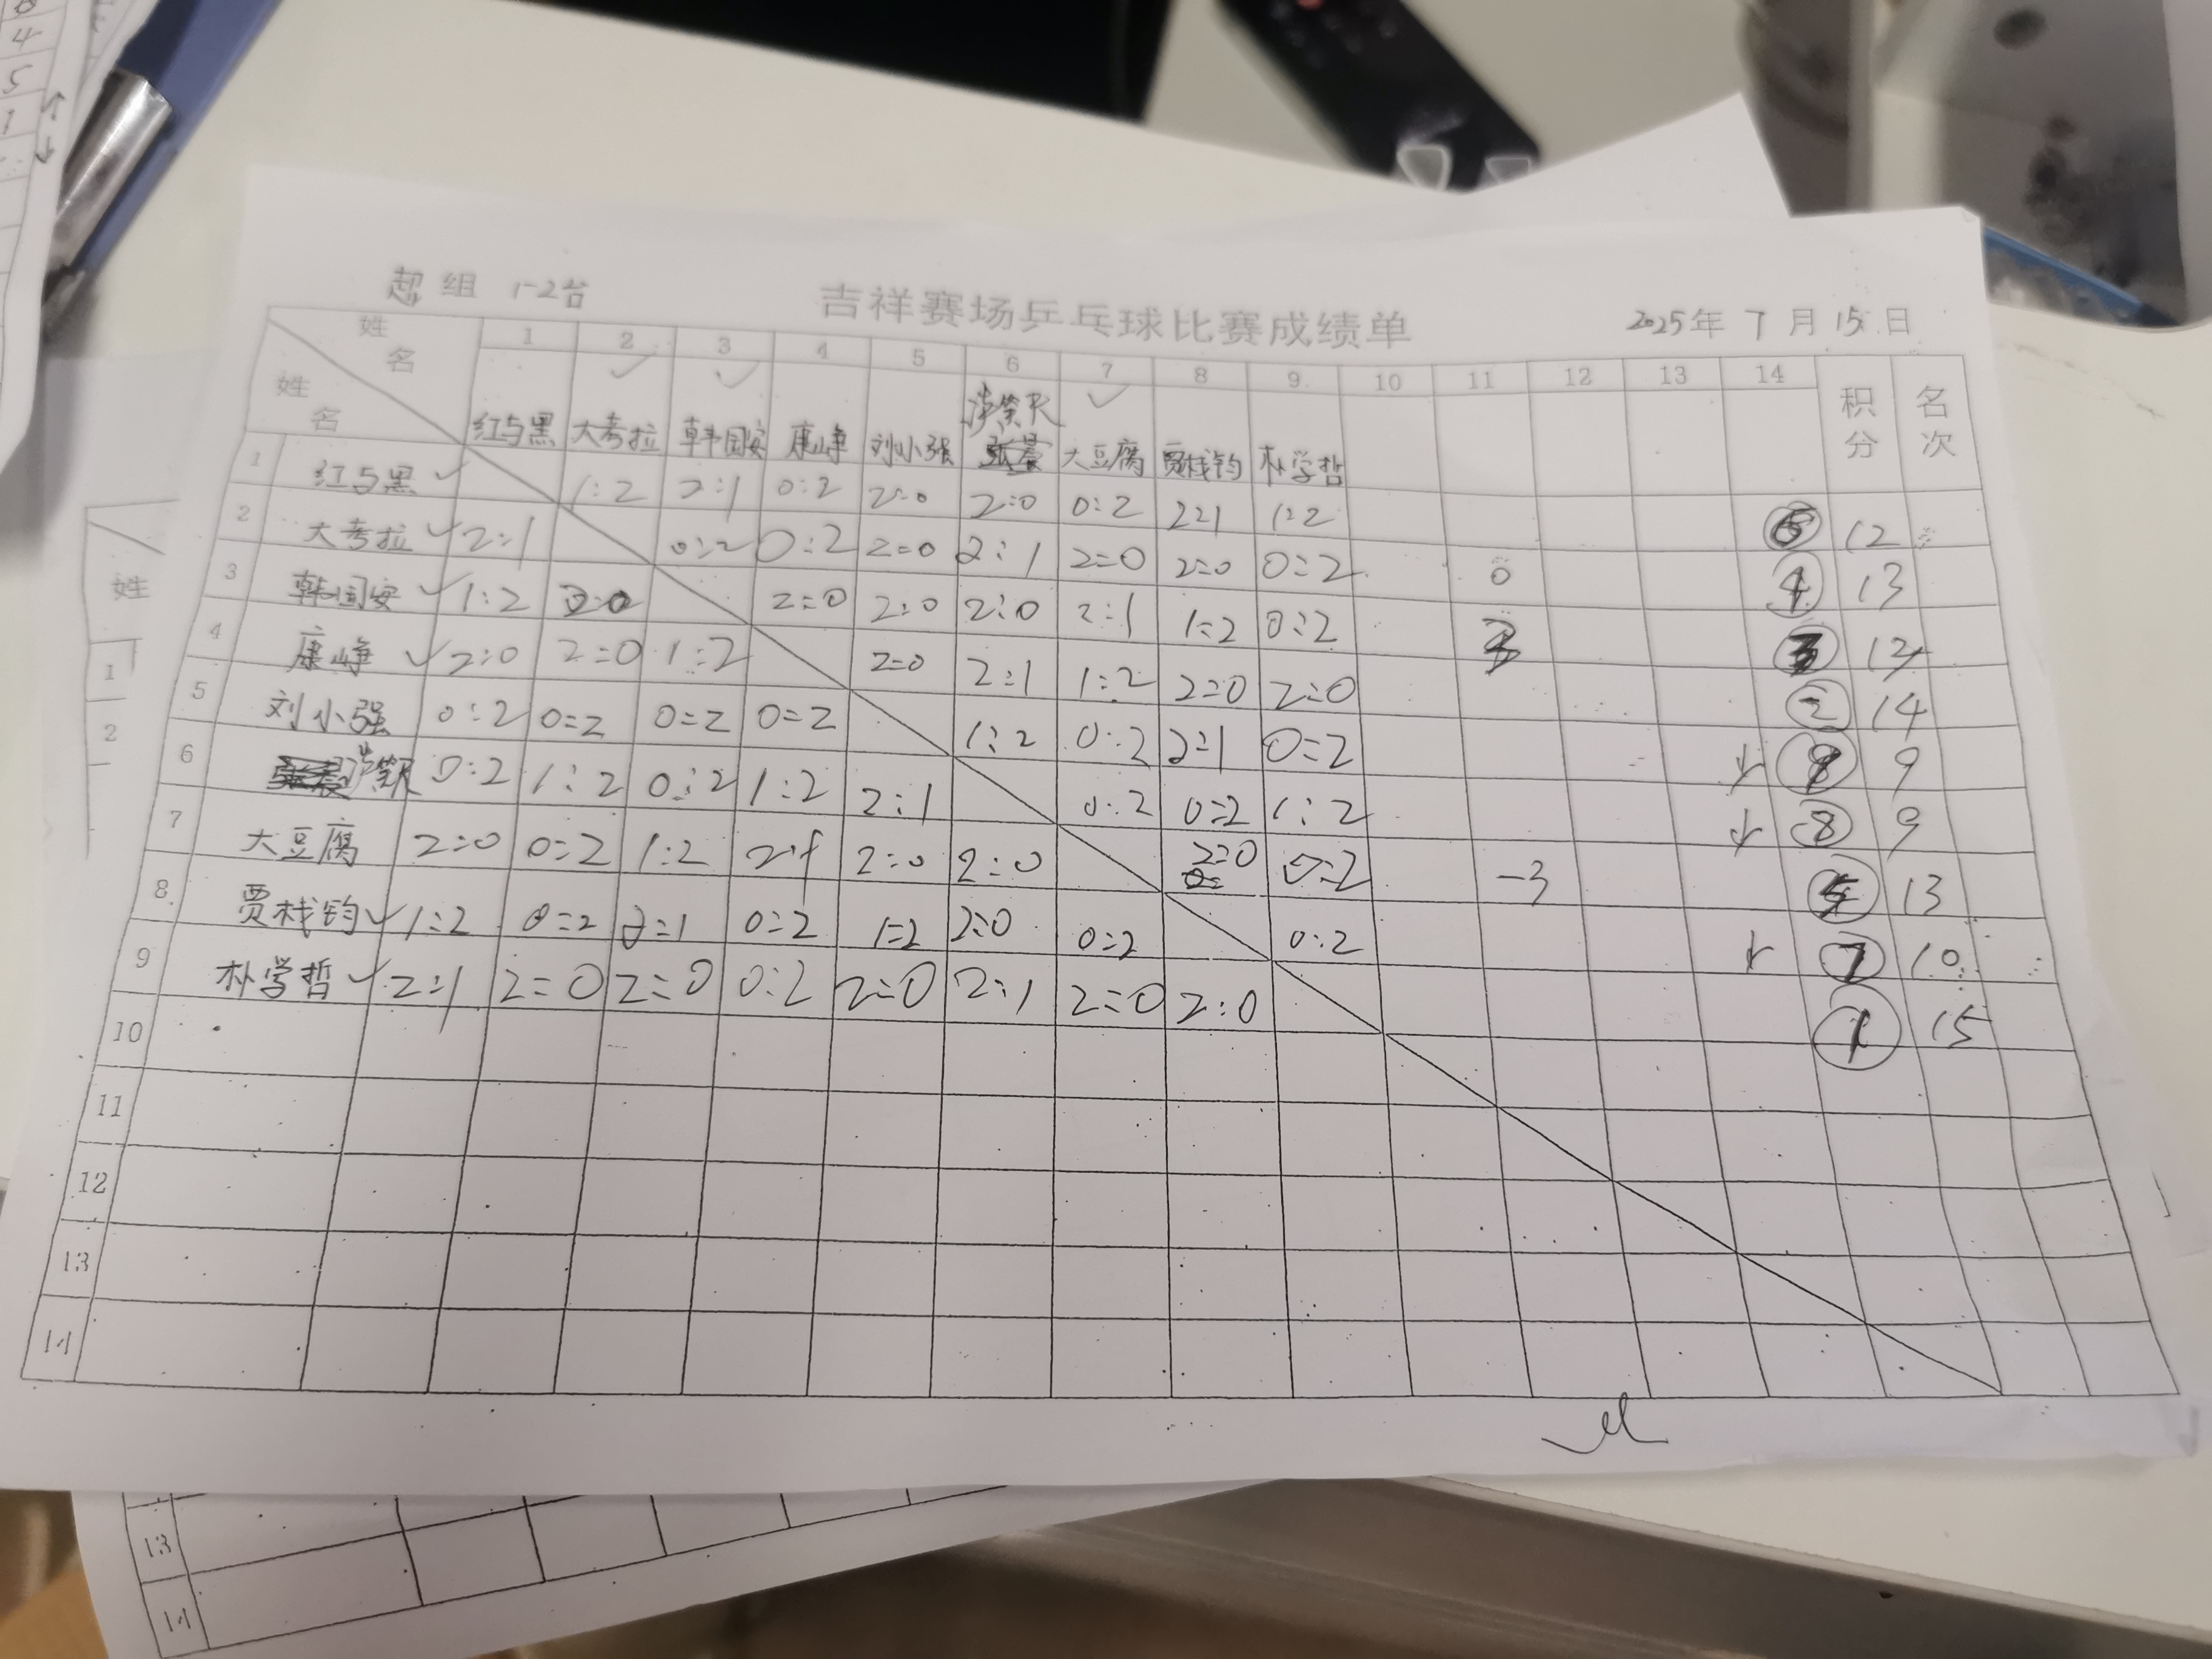 超组 1-2台 吉祥赛场乒乓球比赛成绩单 2025年 7月 15日
姓名 1 2 3 4 5 6 7 8 9 10 11 12 13 14 积分 名次
姓名 红与黑 大考拉 韩国安 康峥 刘小强 大豆腐 贾栈钧 朴学哲
1 红与黑 1:2 2:1 0:2 2:0 2:0 0:2 2:1 1:2 12
2 大考拉 2:1 0:2 0:2 2:0 2:1 2:0 2:0 0:2 0 4 13
3 韩国安 1:2 2:0 2:0 2:0 2:0 2:1 1:2 0:2 3
4 康峥 2:0 2:0 1:2 2:0 2:1 1:2 2:0 2:0 2 14
5 刘小强 0:2 0:2 0:2 0:2 1:2 0:2 2:1 0:2 ↓ 9
6 0:2 1:2 0:2 1:2 2:1 0:2 0:2 1:2 ↓ 8 9
7 大豆腐 2:0 0:2 1:2 2:1 2:0 2:0 2:0 0:2 -3 5 13
8 贾栈钧 1:2 0:2 2:1 0:2 1:2 2:0 0:2 0:2 ↓ 7 10
9 朴学哲 2:1 2:0 2:0 0:2 2:0 2:1 2:0 2:0 1 15
10
11
12
13
14
姓
1
2
13
14
4
5
1